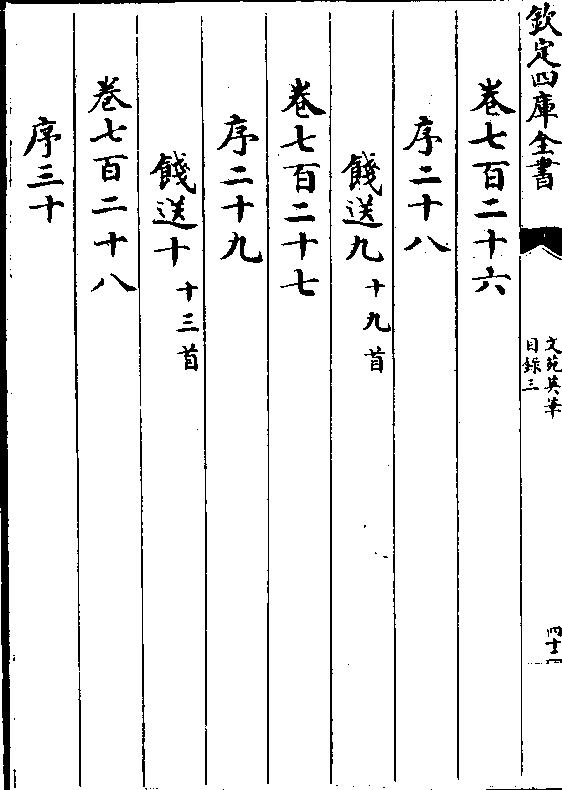 欽定四庫全書
文苑英華
目錄三
卷七百二十六
序二十八
餞送九十九首
卷七百二十七
序二十九
餞送十十三首
卷七百二十八
序三十